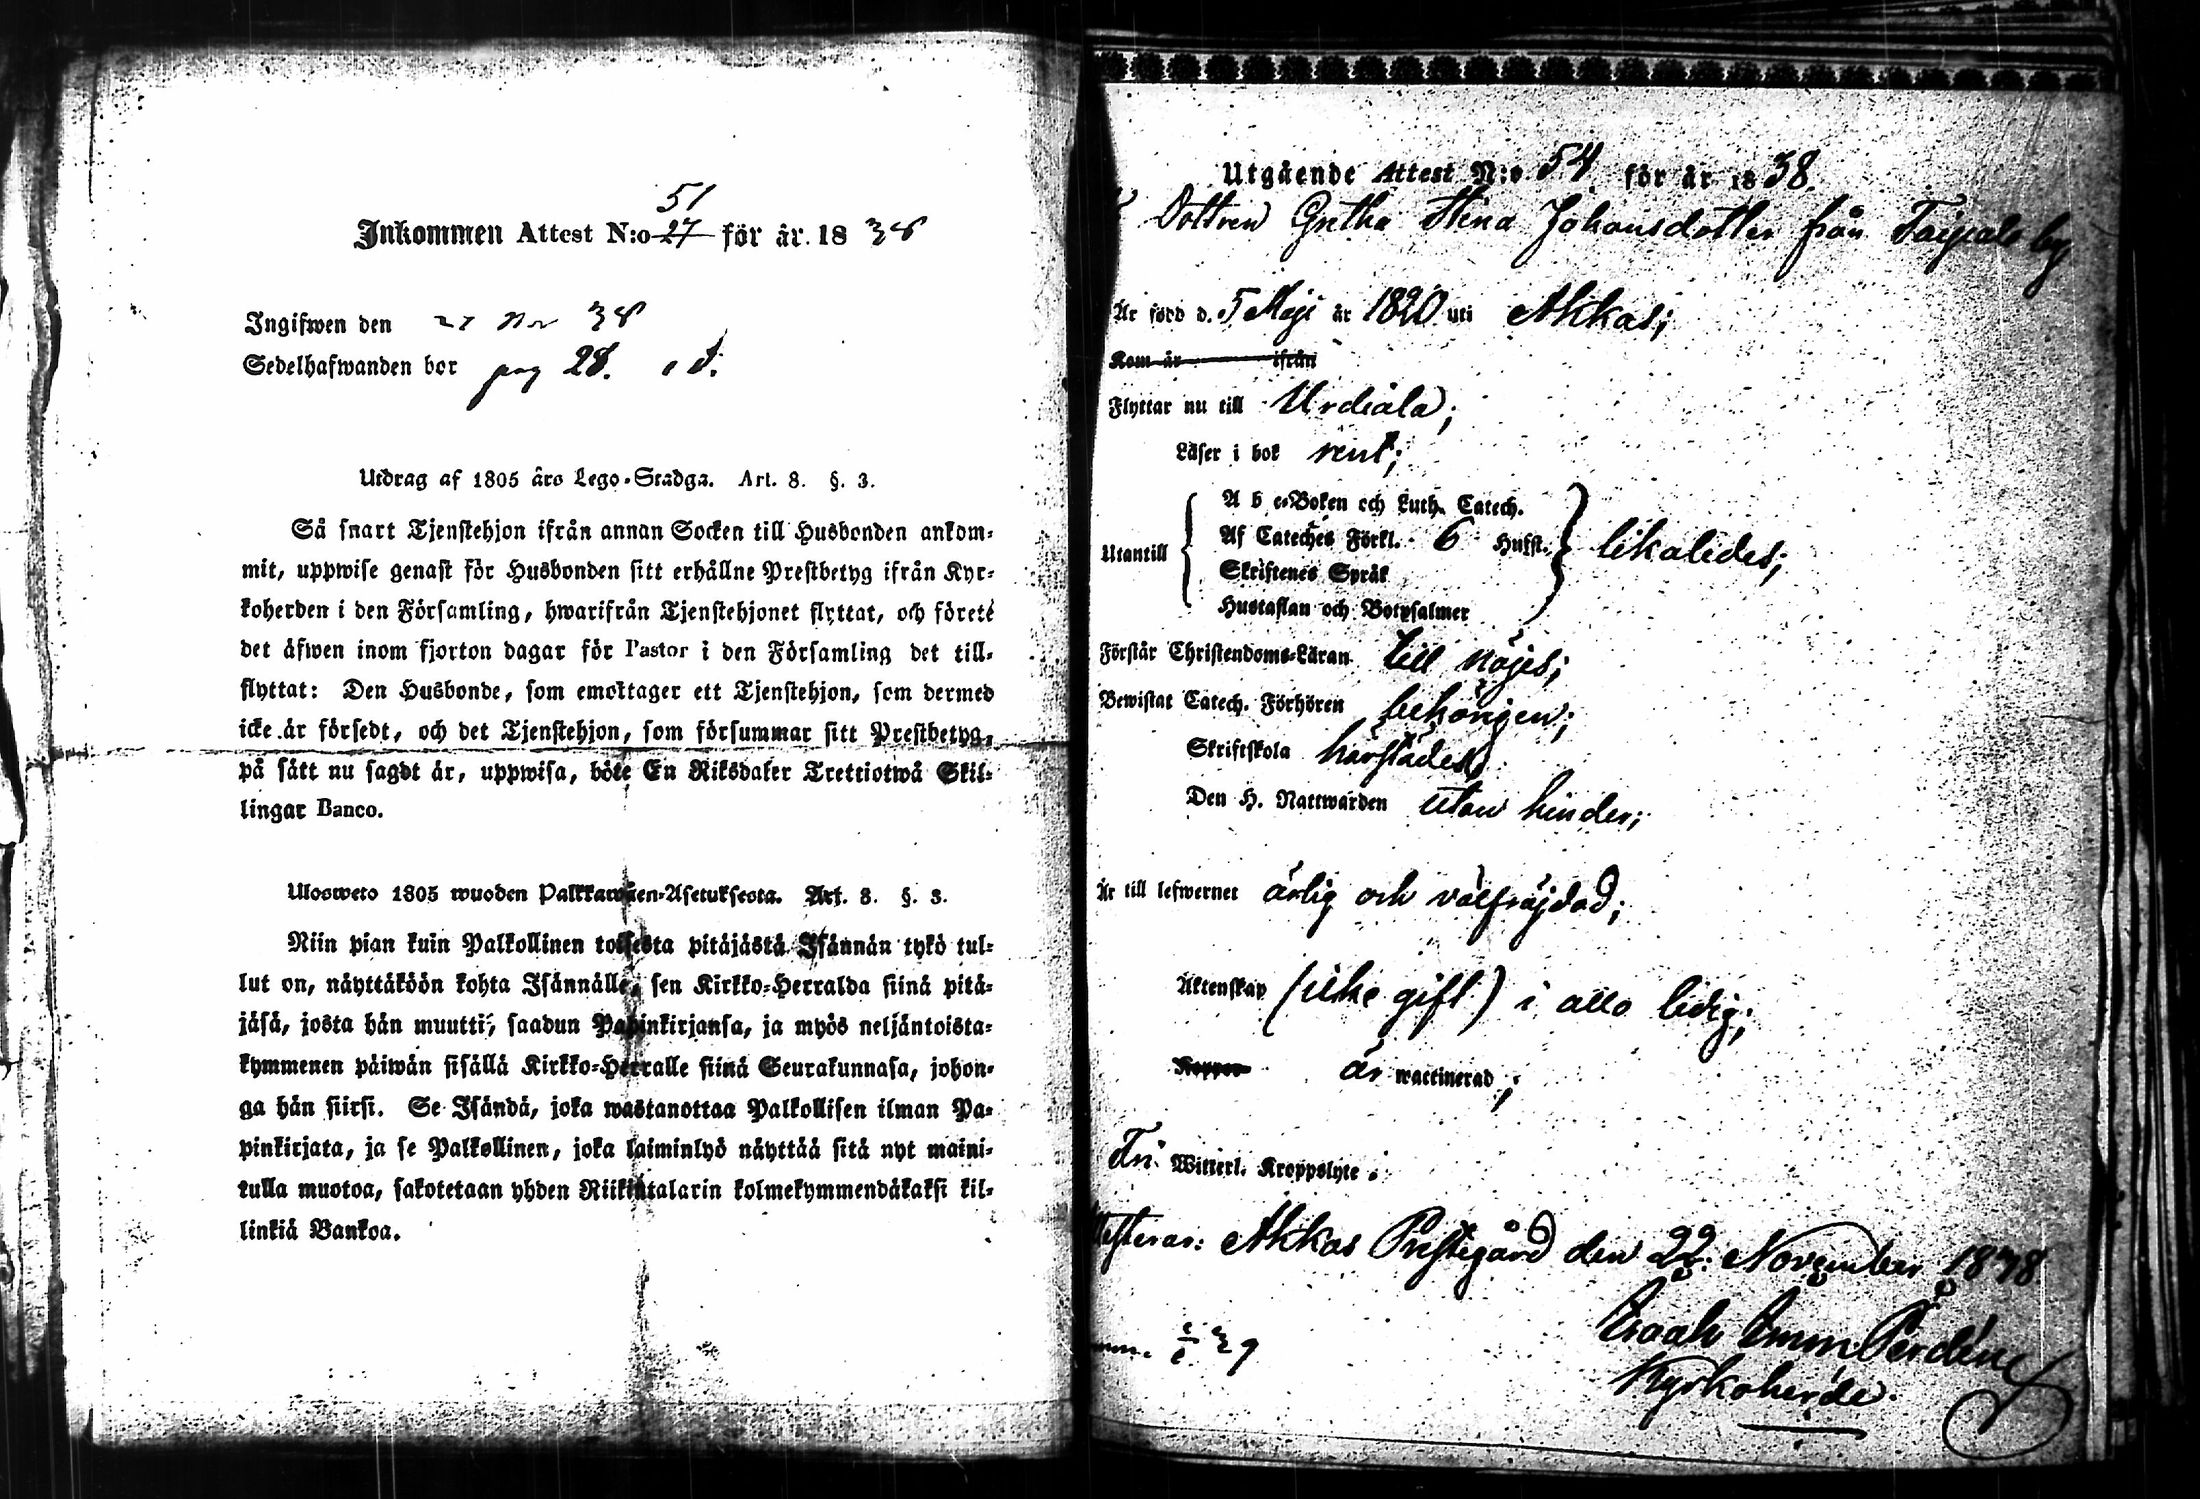 51
Inkommen Attest N:o 27 för år 18 38
Ingifwen den 27 Nov 38
Sedelhafwanden bor pag 28.
Utdrag af 1805 års Lego-Stadga. Art. 8. §. 3.
Så snart Tjenstehjon ifrån annan Socken till Husbonden ankom-
mit, uppwise genast för Husbonden sitt erhållne Prestbetyg ifrån Kyr-
koherden i den Församling, hwarifrån Tjenstehjonet flyttat, och företé
det äfwen inom fjorton dagar för Pastor i den Församling det till-
flyttat: Den Husbonde, som emottager ett Tjenstehjon, som dermed
icke är försedt, och det Tjenstehjon, som försummar sitt Prestbetyg,
på sätt nu sagdt är, uppwisa, böte En Riksdaler Trettiotwå Skil-
lingar Banco.
Ulosweto 1805 wuoden Palkkawäen-Asetuksesta. Art. 8. §. 3.
Niin pian kuin Palkollinen toisesta pitäjästä Isännän tykö tul-
lut on, näyttäköön kohta Isännälle, sen Kirkko-Herralda siinä pitä-
jäsä, josta hän muutti, saadun Papinkirjansa, ja myös neljäntoista-
kymmenen päiwän sisällä Kirkko-Herralle siinä Seurakunnasa, johon-
ga hän siirsi. Se Isändä, joka wastanottaa Palkollisen ilman Pa-
pinkirjata, ja se Palkollinen, joka laiminlyö näyttää sitä nyt maini-
tulla muotoa, sakotetaan yhden Riikintalarin kolmekymmendäkaksi kil-
linkiä Bankoa.
Utgående Attest N:o 54 för år 18 38.
Dottren Gretha Stina Johansdotter från Taipale by
Är född d. 5 Maji år 1820 uti Akkas;
Kom år ifrån
Flyttar nu till Urdiala;
Läser i bok rent;
A b c-Boken och Luth. Catech.
Utantill Af Cateches Förkl. 6 Hufst. likaledes;
Skriftenes Språk
Hustaflan och Botpsalmer
Förstår Christendoms-Läran till nöjes;
Bewistat Catech. Förhören behörigen;
Skriftskola härstädes;
Den H. Nattwarden utan hinder;
Är till lefwernet ärlig och välfräjdad;
Äktenskap (icke gift) i allo ledig;
Koppor är waccinerad;
Fri Witterl. Kroppslyte:
Attesterar: Akkas Prestegård den 22: November 1838
Isaak Emm Perdén
Kyrkoherde.